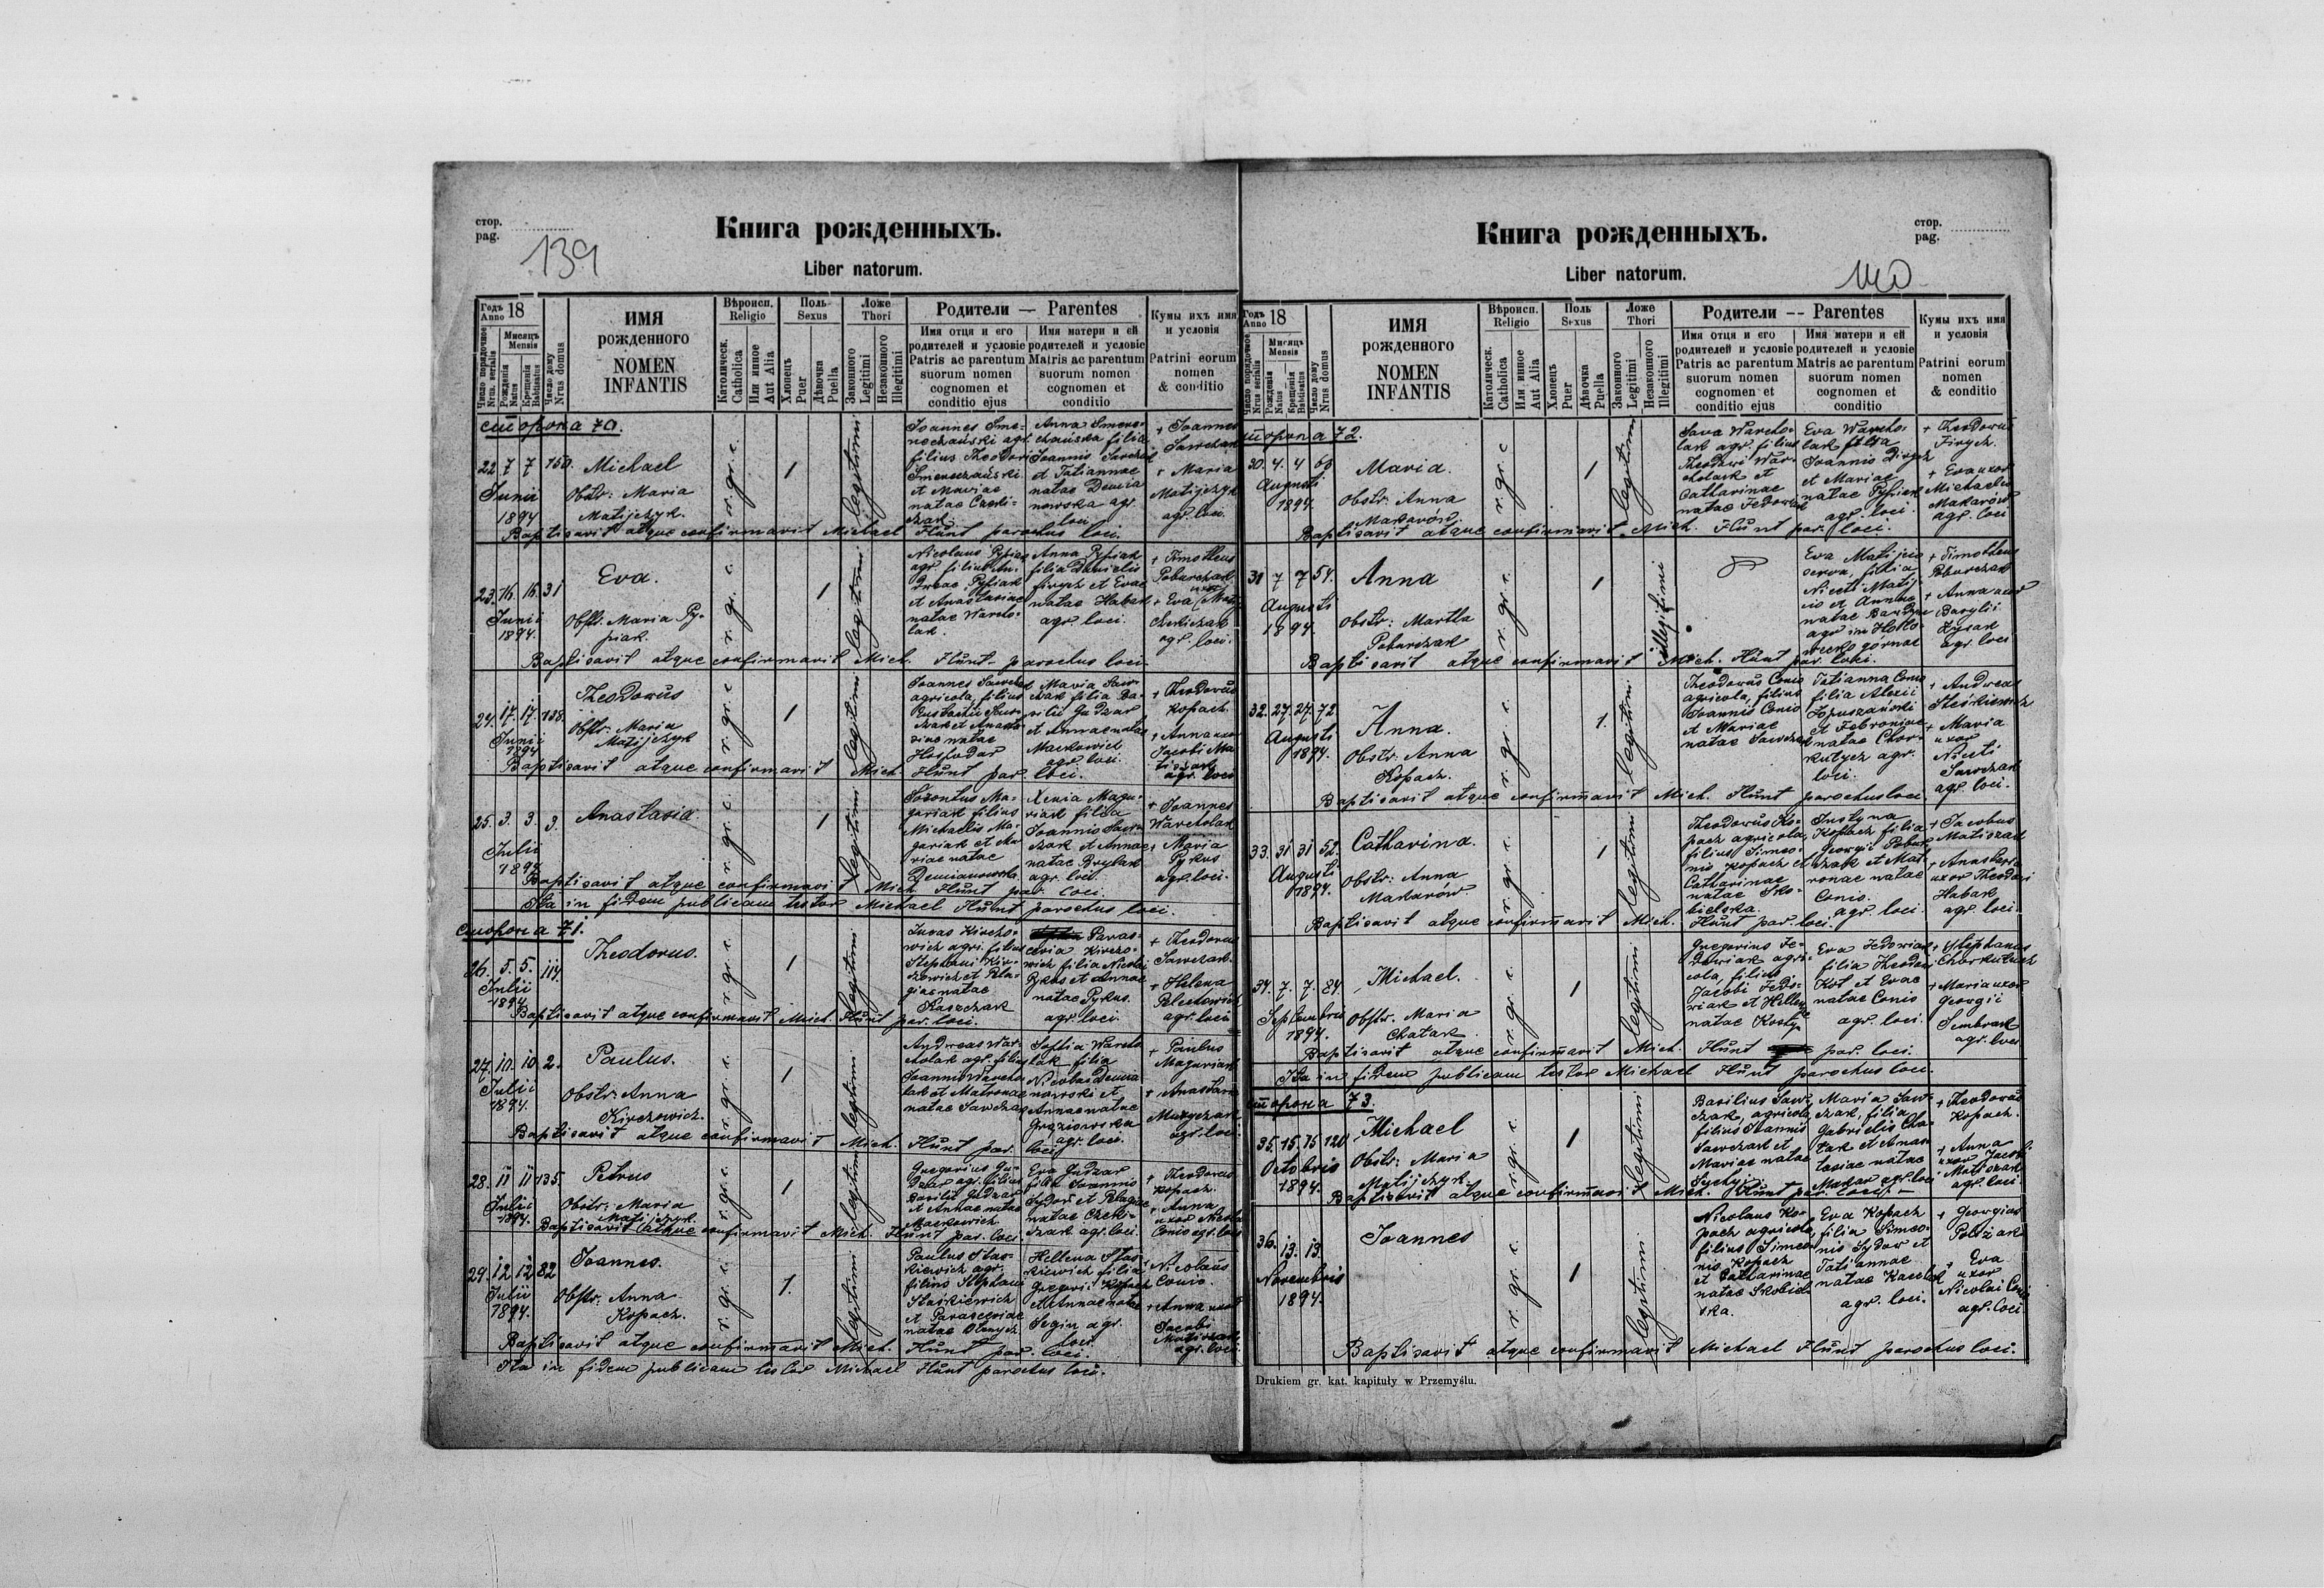 стор.
pag.
139
Книга рожденныхъ.
Liber natorum.
Годъ Anno 18
Число порядочное Nrus. serialis
Мисяцъ Mensis
Рожденія Natus
Крещенія Batisatus
Число дому Nrus domus
ИМЯ
рожденного
NOMEN
INFANTIS
Вѣроисп.
Religio
Католическ. Catholica
Или инное Aut Alia
Поль
Sexus
Хлопецъ Puer
Дѣвочка Puella
Ложе
Thori
Законного Legitimi
Незаконного Illegitimi
Родители — Parentes
Имя отця и его
родителей и условіе
Patris ac parentum
suorum nomen
cognomen et
conditio ejus
Имя матери и ей
родителей и условіе
Matris ac parentum
suorum nomen
cognomen et
conditio
Кумы ихъ имя
и условія
Patrini eorum
nomen
& conditio
сторона 70.
22 7 7 150.
Junii
1894
Michael
Obstr: Maria
Matijczyk.
r. gr. c.
1
legitimi
Joannes Sme-
nechański agr.
filius Theodori
et Mariae
Anna Smere-
chańska filia
Joannis Sawczak
et Tatiannae
natae Demia
nowska agr.
loci
+ Joannes
Sawczak
+ Maria
Matijczyk
agr. loci.
Baptisavit atque confirmavit Michael Hunt parochus loci.
23. 16. 16. 31
Junii
1894.
Eva.
Obstr. Maria Py-
piak.
r. gr. c.
1
legitimi
Nicolaus Pypiak
agr. filius An-
dreae Pypiak
et Anastasiae
natae Warcho-
lak.
Anna Pypiak
filia Danielis
Firych et Evae
natae Habak
agr. loci.
+ Timotheus
Poburczak.
+ Eva
agr. loci.
Baptisavit atque confirmavit Mich. Hunt parochus loci.
24. 17. 17. 138.
Junii
1894
Theodorus
Obstr. Maria
Matijczyk
r. gr. c
1
legitimi
Joannes Sawczak
agricola, filius
Eustachii Saw-
czak et Anasta-
siae natae
Hospodar
Maria Saw-
czak filia Ba-
silii Gudzar
et Annae natae
Mackowich
agr. loci.
+ Theodorus
Kopach.
+ Anna uxor
Jacobi Ma-
tiszak
agr. loci
Baptisavit atque confirmavit Mich. Hunt par loci.
25. 3. 3. 3.
Julii
1894
Anastasia.
r. gr. c.
1
legitimi
Sozontus Ma-
gariak filius
Michaelis Ma-
gariak et Ma-
riae natae
Demianowska
Xenia Maga-
riak filia
Joannis Saw-
czak et Annae
natae Brylak
agr. loci.
+ Joannes
Warcholak
+ Maria
Pyrkus
agr. loci.
Baptisavit atque confirmavit Mich. Hunt par. loci.
Ita in fidem publicam testor Michael Hunt parochus loci.
сторона 71.
26. 5. 5. 114.
Julii
1894
Theodorus.
r. gr. c.
1
legitimi
Lucas Kirczo-
wich agr. filius
Stephani Kir-
czowich et Pela-
giae natae
Kaszczak
Paras-
cevia Kirczo-
wich filia Nicolai
Pyrkus et Annae
natae Pyrkus.
agr. loci.
+ Theodorus
Sawczak.
+ Helena
agr. loci
Baptisavit atque confirmavit Mich. Hunt par. loci.
27. 10. 10. 2.
Julii
1894.
Paulus.
Obstr. Anna
Kirczowich.
r. gr. c.
1
legitimi
Andreas War-
cholak agr. filius
Joannis Warcho-
lak et Matronae
natae Sawczak
Sophia Warcho
lak filia
Nicolai Demia
nowski et
Annae natae
agr. loci.
+ Paulus
Magariak
+ Anastasia
agr. loci.
Baptisavit atque confirmavit Mich. Hunt par. loci
28. 11 11 135.
Julii
1894.
Petrus
Obstr. Maria
Matijczyk.
r. gr. c.
1
legitimi
Gregorius Gu-
dzar agr. filius
Basilii Gudzar
et Annae natae
Mackowich
Eva Gudzar
filia Joannis
Sydor et Pelagiae
natae Czeki-
czak agr. loci.
+ Theodorus
Kopach.
+ Anna
uxor Nicolai
Conio agr. loci
Baptisavit atque confirmavit Mich. Hunt par. loci
29. 12 12 82
Julii
1894.
Joannes.
Obstr. Anna
Kopach.
r. gr. c.
1.
legitimi
Paulus Stas-
kiewich agr.
filius Stephani
Staśkiewich
et Parasceviae
natae
Hellena Stas-
kiewich filia
Gregorii Kopach
et Annae natae
Segin agr.
loci.
+ Nicolaus
Conio.
+ Anna uxor
Jacobi
Matiszak
agr. loci.
Baptisavit atque confirmavit Mich. Hunt par. loci.
Ita in fidem publicam testor Michael Hunt parochus loci.
стор.
pag.
140
Книга рожденныхъ.
Liber natorum.
Годъ Anno 18
Число порядочное Nrus serialis
Мисяцъ Mensis
Рожденія Natus
Крещенія Batisatus
Число дому Nrus domus
ИМЯ
рожденного
NOMEN
INFANTIS
Вѣроисп.
Religio
Католическ. Catholica
Или инное Aut Alia
Поль
Sexus
Хлопецъ Puer
Дѣвочка Puella
Ложе
Thori
Законного Legitimi
Незаконного Illegitimi
Родители -- Parentes
Имя отця и его
родителей и условіе
Patris ac parentum
suorum nomen
cognomen et
conditio ejus
Имя матери и ей
родителей и условіе
Matris ac parentum
suorum nomen
cognomen et
conditio
Кумы ихъ имя
и условія
Patrini eorum
nomen
& conditio
сторона 72.
30. 4. 4 60
Augusti
1894.
Maria.
Obstr. Anna
Makarów
r. gr. c
1
legitimi
Sava Warcho-
lak agr. filius
Theodori War-
cholak et
Catharinae
natae Fedoriak
Eva Warcho-
lak filia
Joannis
et Mariae
natae Pypiak
agr. loci.
+ Theodorus
Firych.
+ Eva uxor
Michaelis
Makarów
agr. loci
Baptisavit atque confirmavit Mich. Hunt par. loci.
31 7 7 54.
Augusti
1894.
Anna
Obstr: Martha
Poburczak
r. gr. c.
1
illegitimi
Eva Matijcio
serva, filia
Niceti Matij-
cio et Annae
natae
agr in Hoło-
wecko górnae
+ Timotheus
Poburczak
+ Anna uxor
Basylii
Zysak
agr. loci
Baptisavit atque confirmavit Mich. Hunt par. loci.
32. 27. 27. 72
Augusti
1894.
Anna.
Obstr. Anna
Kopach.
r. gr. c.
1.
legitimi
Theodorus Conio
agricola, filius
Joannis Conio
et Mariae
natae Sawczak
Tatianna Conio
filia Alexii
Łopuszański
et Febroniae
natae Chor-
kutych agr.
loci.
+ Andreas
Staśkiewich
+ Maria
uxor
Niceti
Sawczak
agr. loci.
Baptisavit atque confirmavit Mich. Hunt parochus loci
33. 31 31 52.
Augusti
1894.
Catharina.
Obstr: Anna
Makarów
r. gr. c.
1
legitimi
Theodorus Ko-
pach agricola,
filius Simeo-
nis Kopach et
Catharinae
natae Sko-
bielska.
Justyna
Kopach filia
Georgii Pobur-
czak et Mat-
ronae natae
Conio.
agr. loci.
+ Jacobus
Matiszak
+ Anastasia
uxor Theodori
Habak
agr. loci.
Baptisavit atque confirmavit Mich. Hunt par. loci.
34. 7. 7. 84.
Septembris
1894.
Michael.
Obstr. Maria
Chatak
r. gr. c.
1
legitimi
Gregorius Fe-
doriak agri-
cola, filius
Jacobi Fedo-
riak et Hellenae
natae
Eva Fedoriak
filia Theodori
Kot et Evae
natae Conio
agr. loci.
+ Stephanus
Chorkutych
+ Maria uxor
Georgii
Sembrak
agr. loci
Baptisavit atque confirmavit Mich. Hunt par. loci.
Ita in fidem publicam testor Michael Hunt parochus loci.
сторона 73.
35. 15. 15. 120
Octobris
1894.
Michael
Obstr: Maria
Matijczyk.
r. gr. c.
1
legitimi
Basilius Saw-
czak, agricola,
filius Joannis
Sawczak et
Mariae natae
Maria Saw-
czak, filia
Gabrielis Cha-
tak et Anas-
tasiae natae
agr. loci
+ Theodorus
Kopach.
+ Anna
uxor Jacobi
Matiszak
agr. loci
Baptisavit atque confirmavi Mich. Hunt par. loci.
36. 13. 13.
Novembris
1894.
Joannes
r. gr. c.
1
legitimi
Nicolaus Ko-
pach agricola,
filius Simeo-
nis Kopach
et Catharinae
natae Skobiel-
ska.
Eva Kopach
filia Simeo-
nis Sydor et
Tatiannae
natae
agr. loci.
+ Georgius
+ Eva
uxor
Nicolai Conio
agr. loci
Baptisavit atque confirmavit Michael Hunt parochus loci.
Drukiem gr. kat. kapituły w Przemyślu.